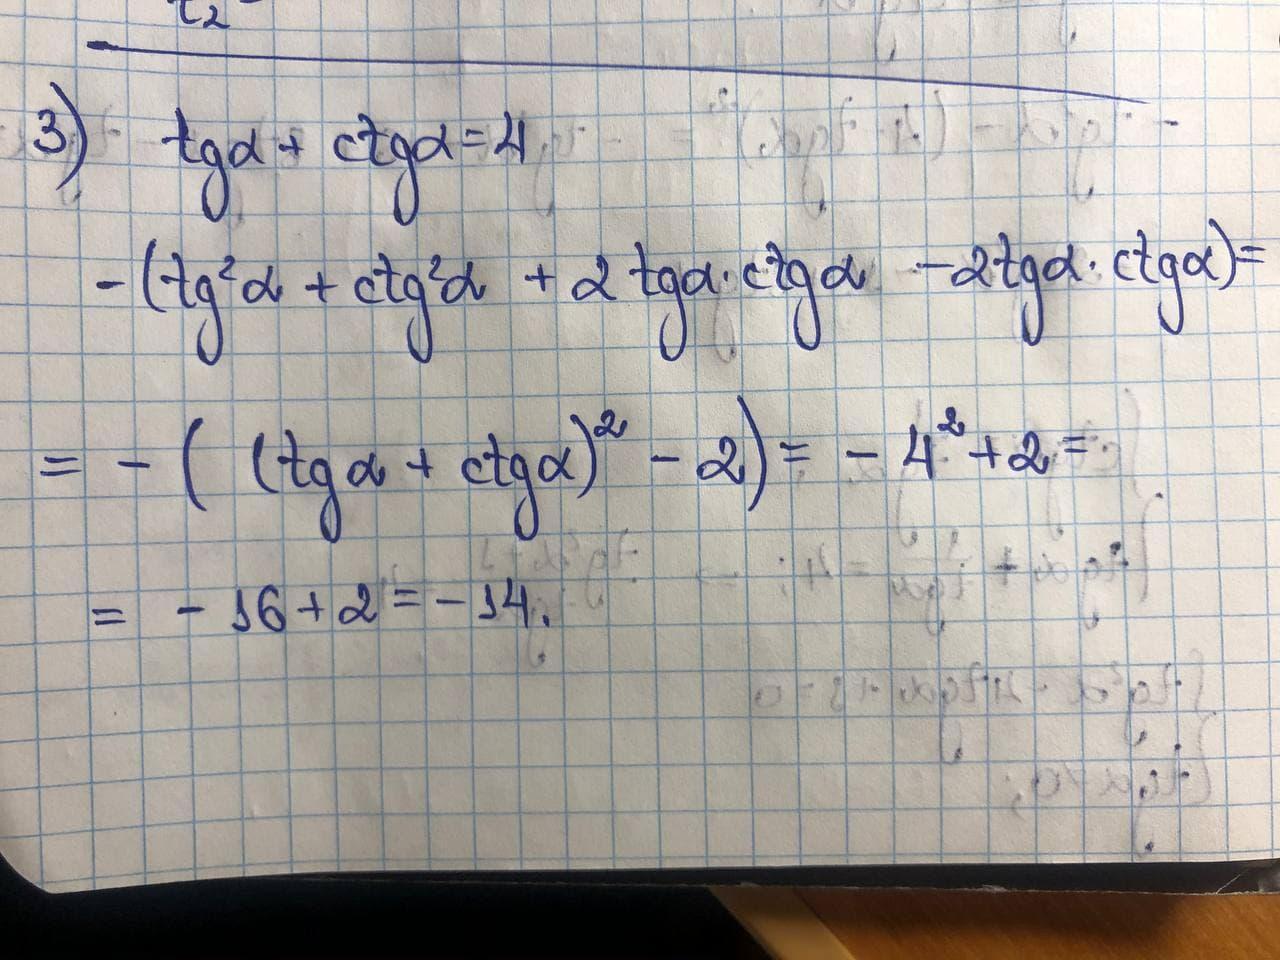 t₂
3) tgα + ctgα = 4
-(tg²α + ctg²α + 2tgα·ctgα - 2tgα·ctgα) =
= -((tgα + ctgα)² - 2) = -4² + 2 =
= -16 + 2 = -14.